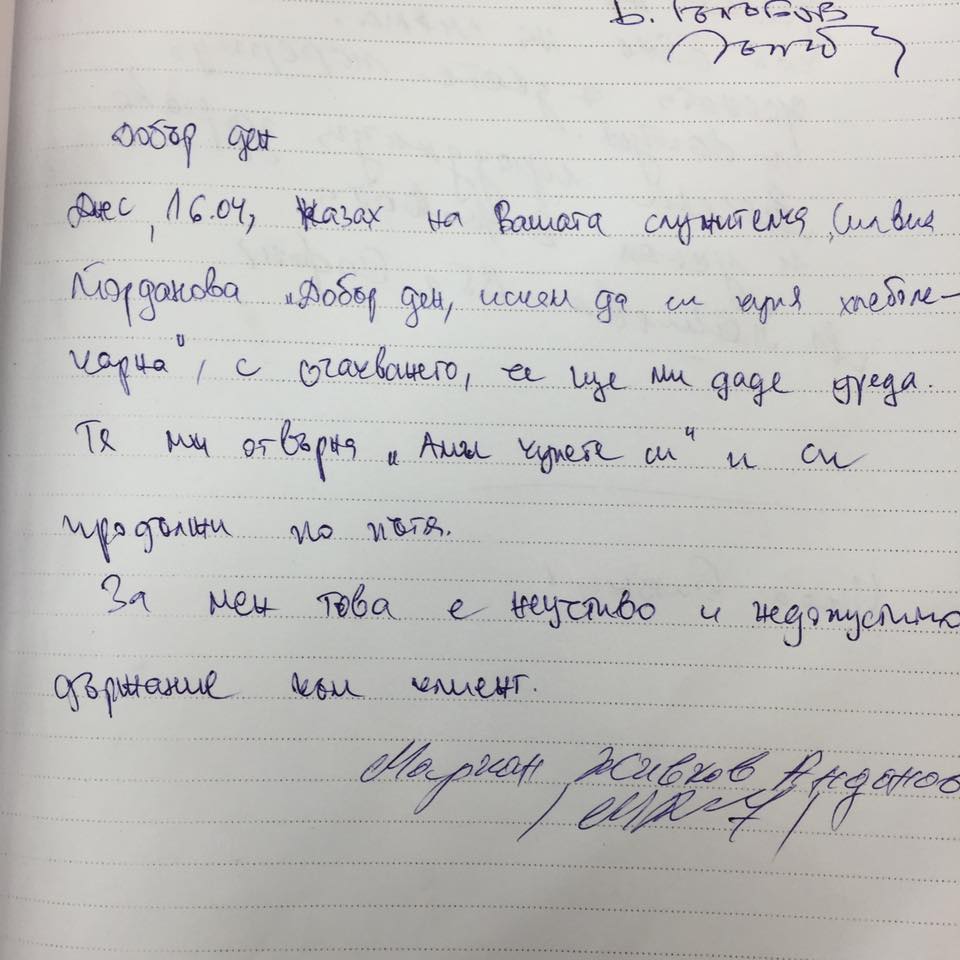 Добър ден
Днес, 16.04, казах на Вашата служителка Силвия
Йорданова „Добър ден, искам да си купя хлебопе-
карна", с очакването, че ще ми даде уреда.
Тя ми отвърна „Ами купете си" и си
продължи по пътя.
За мен това е неучтиво и недопустимо
държание към клиент.
Мариан Живков Андонов